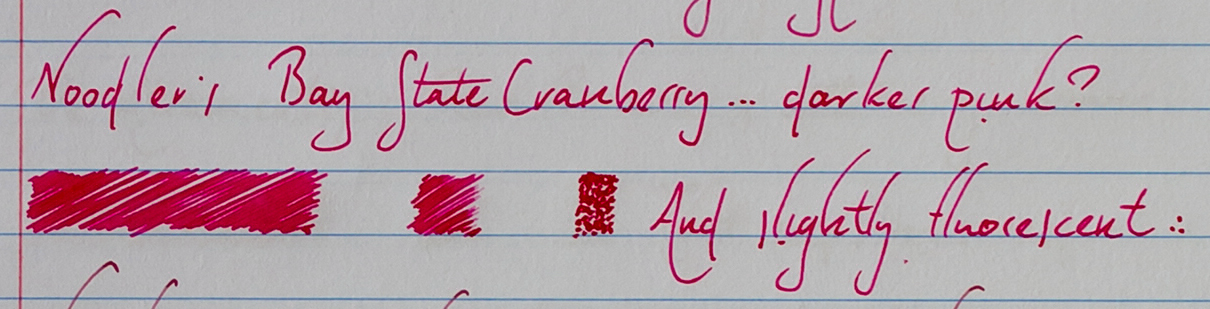 Noodler's Bay State Cranberry... darker pink?
And slightly fluorescent :